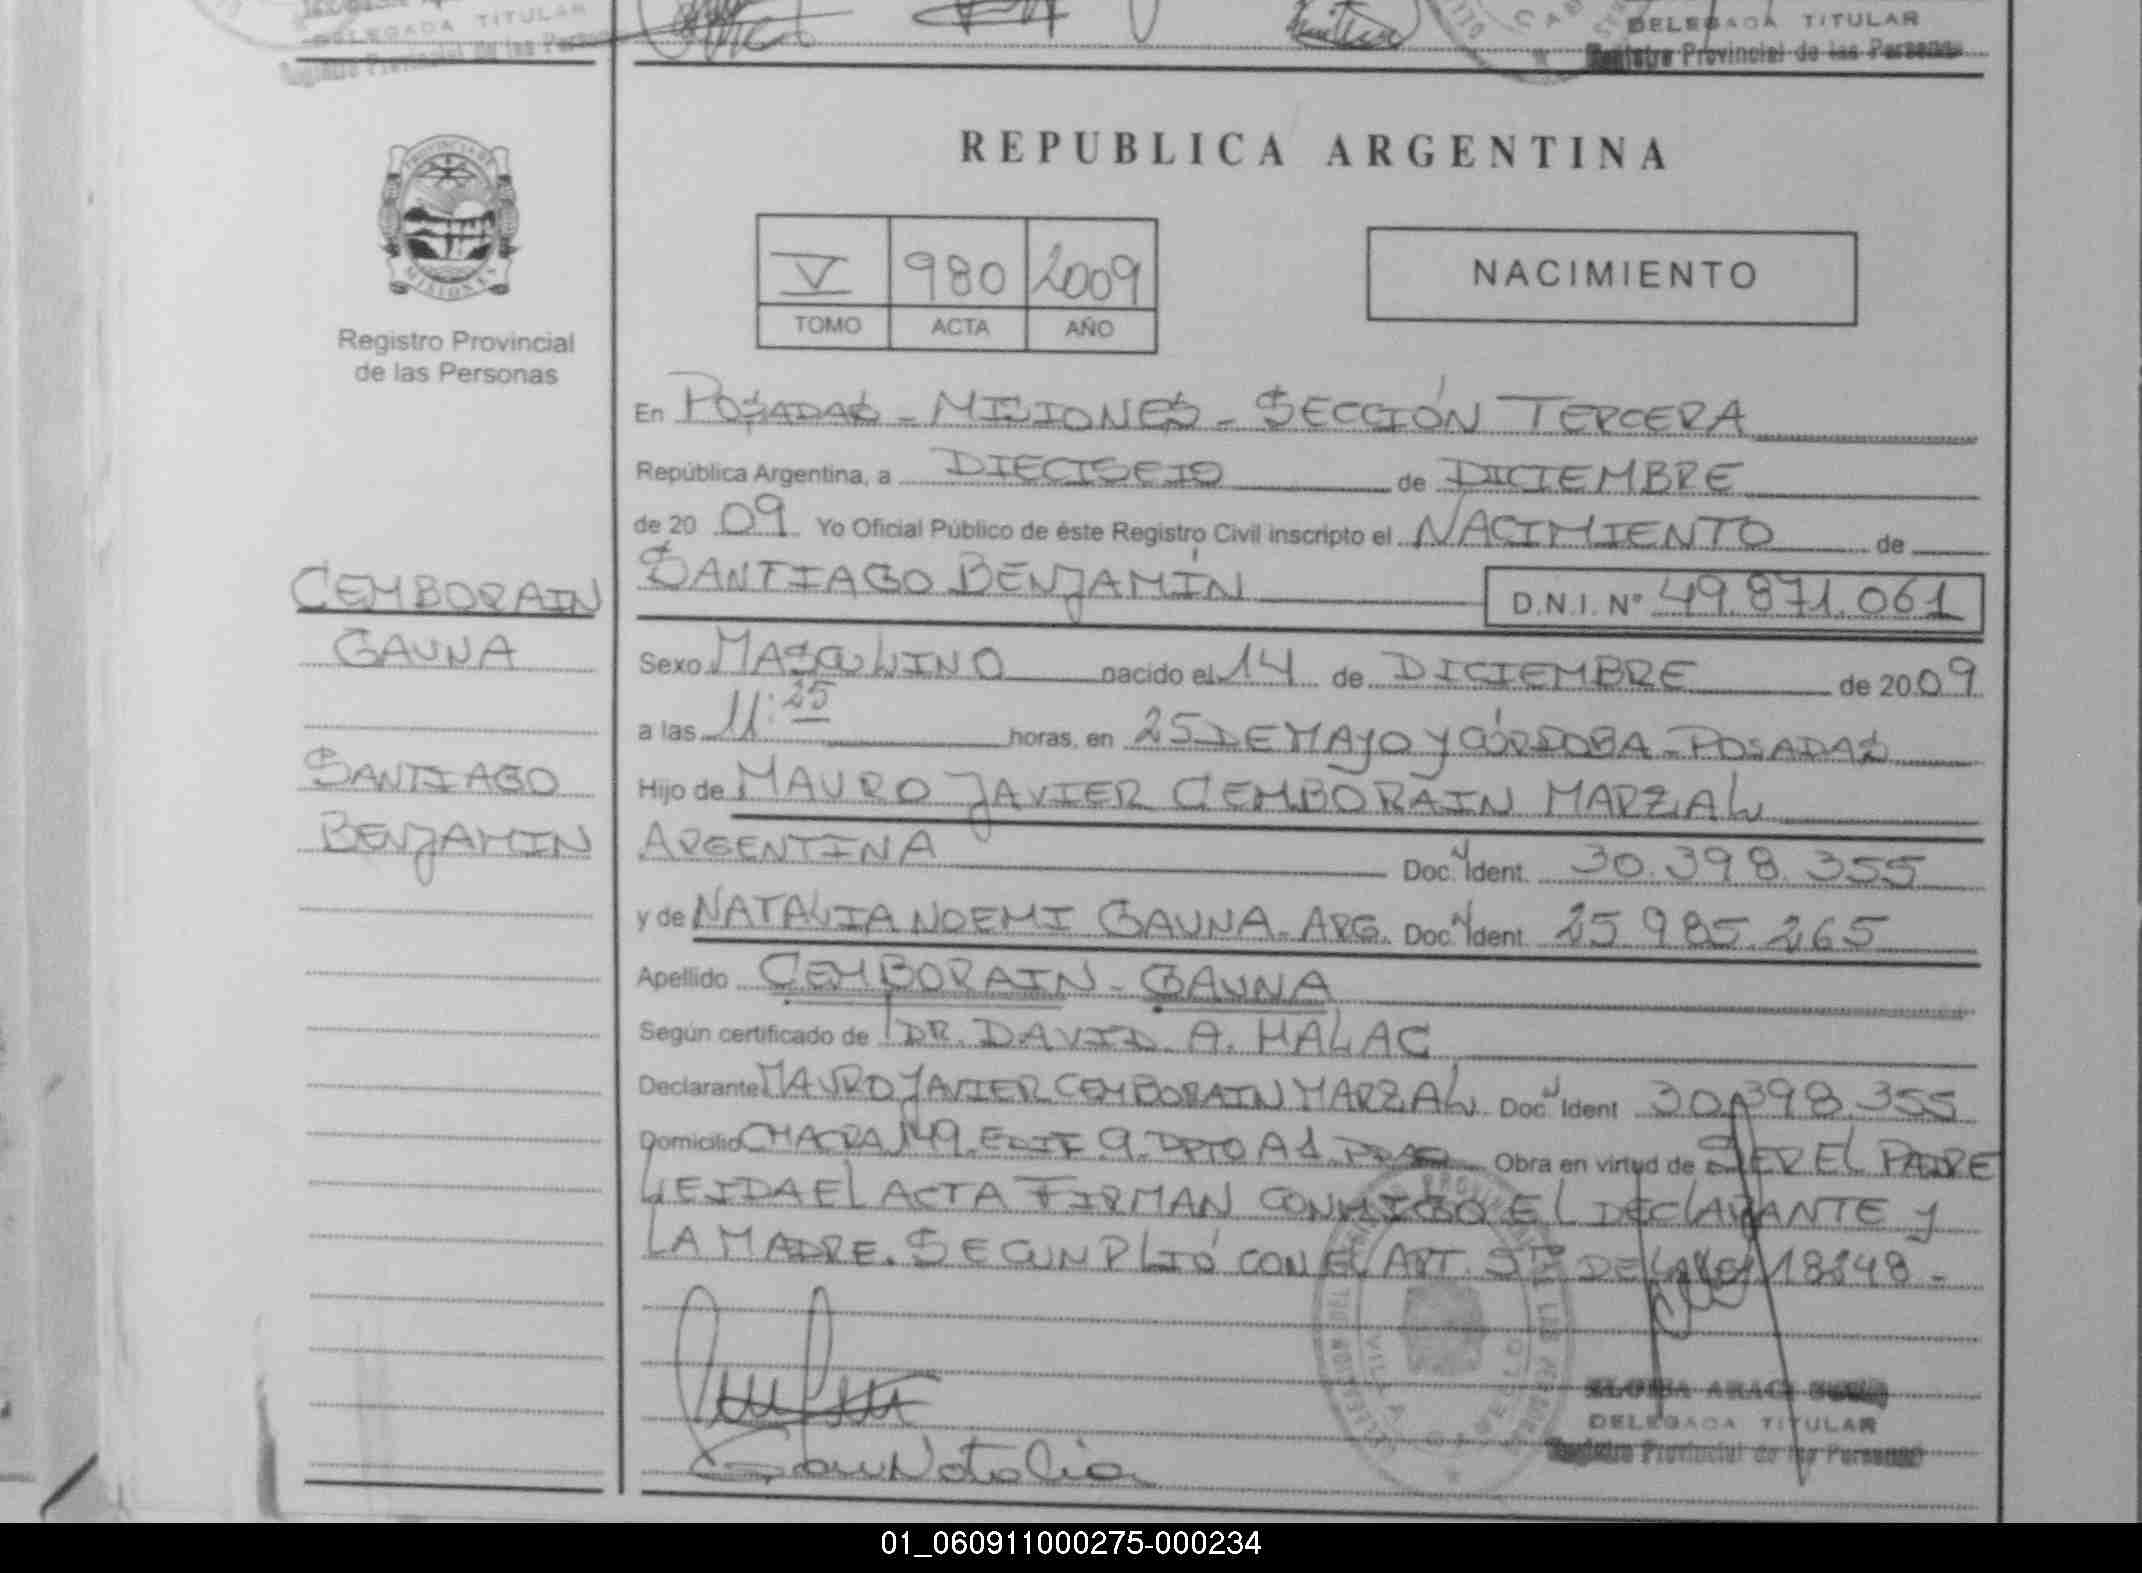 DELEGADA TITULAR
Registro Provincial de las Personas
DELEGADA TITULAR
Registro Provincial de las Personas
REPUBLICA ARGENTINA
V 980 2009
TOMO ACTA AÑO
NACIMIENTO
Registro Provincial
de las Personas
En POSADAS - MISIONES - SECCIÓN TERCERA
República Argentina, a DIECISEIS de DICIEMBRE
de 20 09 Yo Oficial Público de éste Registro Civil inscripto el NACIMIENTO de
SANTIAGO BENJAMÍN D.N.I. Nº 49.871.061
CEMBORAIN
GAUNA
SANTIAGO
BENJAMIN
Sexo MASCULINO nacido el 14 de DICIEMBRE de 2009
a las 11:25 horas, en 25 DE MAYO Y CÓRDOBA - POSADAS
Hijo de MAURO JAVIER CEMBORAIN MARZAL
ARGENTINA Doc. Ident. 30.398.355
y de NATALIA NOEMI GAUNA - ARG. Doc. Ident. 25.985.265
Apellido CEMBORAIN - GAUNA
Según certificado de DR. DAVID A. HALAC
Declarante MAURO JAVIER CEMBORAIN MARZAL Doc. Ident 30.398.355
Domicilio CHACRA 149. EDIF 9. DPTO A1. Obra en virtud de SER EL PADRE
LEIDA EL ACTA FIRMAN CONMIGO EL DECLARANTE Y
LA MADRE. SE CUNPLIÓ CON EL ART. 5to DE LA LEY 18248 -
DELEGADA TITULAR
Registro Provincial de las Personas
01_060911000275-000234